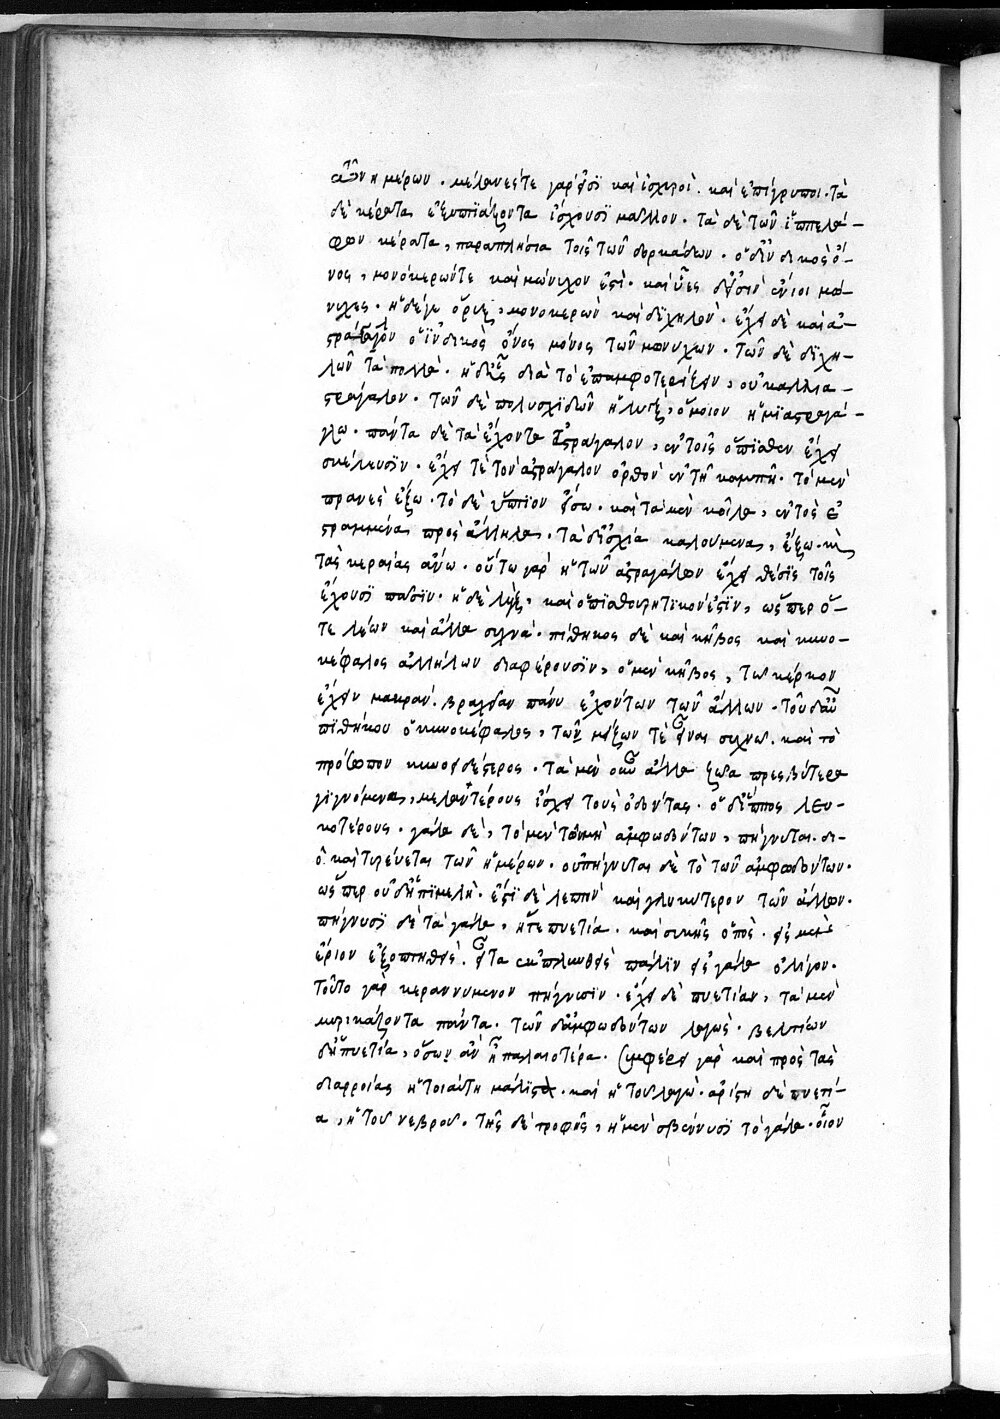 τῶν ἡμέρων. μέλανές τε γάρ εἰσϊ καὶ ἰσχυροὶ. καὶ ἐπίγρυποι. τὰ
δὲ κέρατα ἐξυπτιάζοντα ἴσχουσϊ μᾶλλον. τὰ δὲ τῶν ἱππελά-
φων κέρατα, παραπλήσια τοῖς τῶν δορκάδων. ὁ δ' ἰνδικὸς ὄ-
νος, μονόκερών τε καὶ μώνυχον ἐστὶ. καὶ ὗες δ' εἰσὶν ἔνιοι μώ-
νυχες. ἡ δέ γε ὄρυξ, μονόκερων καὶ δίχηλον. ἔχει δὲ καὶ ἀ-
στράγαλον ὁ ἰνδικὸς ὄνος μόνος τῶν μωνύχων. τῶν δὲ διχή-
λων τὰ πολλὰ. ἡ δ' ὗς διὰ τὸ ἐπαμφοτερίζειν, οὐ καλλια-
στράγαλον. τῶν δὲ πολυσχιδῶν ἡ λυγξ, ὅμοιον ἡμιαστραγά-
λῳ. πάντα δὲ τὰ ἔχοντα ἀστράγαλον, ἐν τοῖς ὄπισθεν ἔχει
σκέλεσϊν. ἔχει τὲ τὸν ἀστράγαλον ὀρθὸν ἐν τῇ καμπῇ. τὸ μὲν
πρανὲς ἔξω. τὸ δὲ ὕπτιον εἴσω. καὶ τὰ μὲν κοῖλα, ἐντὸς ἐ
στραμμένα πρὸς ἄλληλα. τὰ δ' ἰσχία καλούμενα, ἔξω. καὶ
τὰς κεραίας ἄνω. οὕτω γὰρ ἡ τῶν ἀστραγάλων ἔχει θέσϊς τοῖς
ἔχουσϊ πᾶσϊν. ἡ δὲ λὺγξ, καὶ ὀπισθουρητικόν ἐστϊν, ὥσπερ ὅ-
τε λέων καὶ ἄλλα συχνά. πίθηκος δὲ καὶ κῆβος καὶ κυνο-
κέφαλος ἀλλήλων διαφέρουσϊν, ὁ μὲν κῆβος, τῷ κέρκον
ἔχειν μακρὰν. βραχεῖαν πάνυ ἐχόντων τῶν ἄλλων. τοῦ δ' αὖ
πιθήκου ὁ κυνοκέφαλος, τῶ μείζων τὲ εἶναι συχνῶ. καὶ τὸ
πρόσωπον κυνοειδέστερος. τὰ μὲν οὖν ἄλλα ζῶα πρεσβύτερα
γϊγνόμενα, μελαντέρους ἴσχει τοὺς ὀδόντας. ὁ δ' ἵππος λευ-
κοτέρους. γάλα δὲ, τὸ μὲν τῶν μὴ ἀμφωδόντων, πήγνυται. δι-
ὸ καὶ τυρεύεται τῶν ἡμέρων. οὐ πήγνυται δὲ τὸ τῶν ἀμφωδόντων.
ὥσπερ οὐδ' ἡ πϊμελὴ. ἐστὶ δὲ λεπτὸν καὶ γλυκύτερον τῶν ἄλλων.
πήγνυσϊ δὲ τὰ γάλα, ἥ τε πυετία. καὶ συκῆς ὀπὸς. εἰς μὲν
ἔριον ἐξοπισθεὶς. εἶτα ἐκπλυνθεὶς πάλϊν εἰς γάλα ὀλίγον.
τοῦτο γὰρ κεραννύμενον πήγνυσϊν. ἔχει δὲ πυετίαν, τὰ μὲν
μυρικάζοντα πάντα. τῶν δ' ἀμφωδόντων λαγὼς. βελτίων
δ' ἡ πυετία, ὅσῳ ἂν ᾖ παλαιοτέρα. συμφέρει γὰρ καὶ πρὸς τὰς
διαρροίας ἡ τοιαύτη μάλιστα. καὶ ἡ τοῦ λαγὼ. ἀρίστη δὲ πυετί-
α, ἡ τοῦ νεβροῦ. τῆς δὲ τροφῆς, ἡ μὲν σβεννύσϊ τὸ γάλα. οἷον